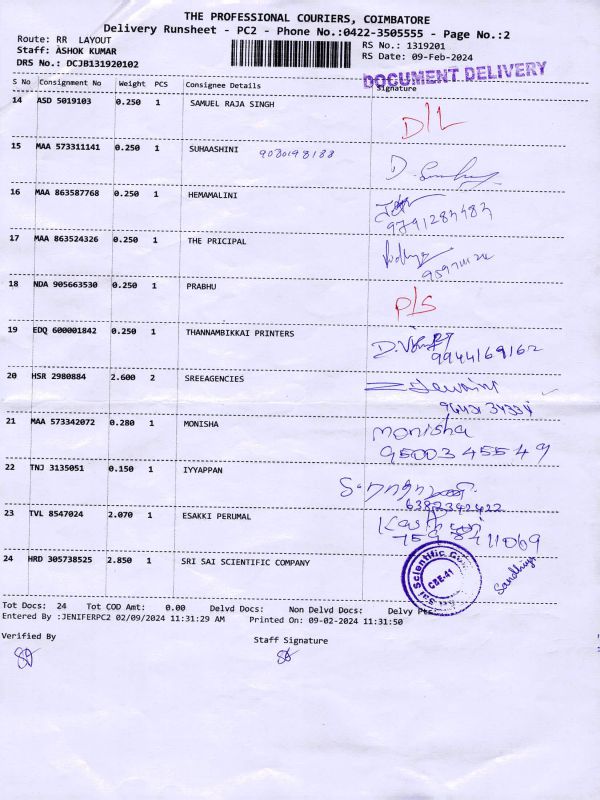 THE PROFESSIONAL COURIERS, COIMBATORE
Delivery Runsheet - PC2 - Phone No.:0422-3505555 - Page No.:2
Route: RR LAYOUT
RS No.: 1319201
Staff: ASHOK KUMAR
RS Date: 09-Feb-2024
DRS No.: DCJB131920102
DOCUMENT DELIVERY
S No Consignment No Weight PCS Consignee Details Signature
14 ASD 5019103 0.250 1 SAMUEL RAJA SINGH D/L
15 MAA 573311141 0.250 1 SUHAASHINI 9080198188
16 MAA 863587768 0.250 1 HEMAMALINI
9791284483
17 MAA 863524326 0.250 1 THE PRICIPAL
18 NDA 905663530 0.250 1 PRABHU P/S
19 EDQ 600001842 0.250 1 THANNAMBIKKAI PRINTERS
9944169162
20 HSR 2980884 2.600 2 SREEAGENCIES
21 MAA 573342072 0.280 1 MONISHA monisha
95003 45549
22 TNJ 3135051 0.150 1 IYYAPPAN
6382342422
23 TVL 8547024 2.070 1 ESAKKI PERUMAL
24 HRD 305738525 2.850 1 SRI SAI SCIENTIFIC COMPANY
Sai Scientific
CBE-41
Sandhya
Tot Docs: 24 Tot COD Amt: 0.00 Delvd Docs: Non Delvd Docs: Delvy Pts:
Entered By :JENIFERPC2 02/09/2024 11:31:29 AM Printed On: 09-02-2024 11:31:50
Verified By
Staff Signature